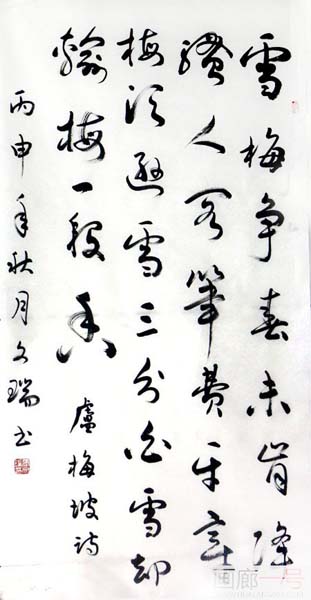 雪梅争春未肯降
骚人阁筆費平章
梅须遜雪三分白雪却
輸梅一段香 盧梅坡诗
丙申年秋月文瑞书
画廊一号